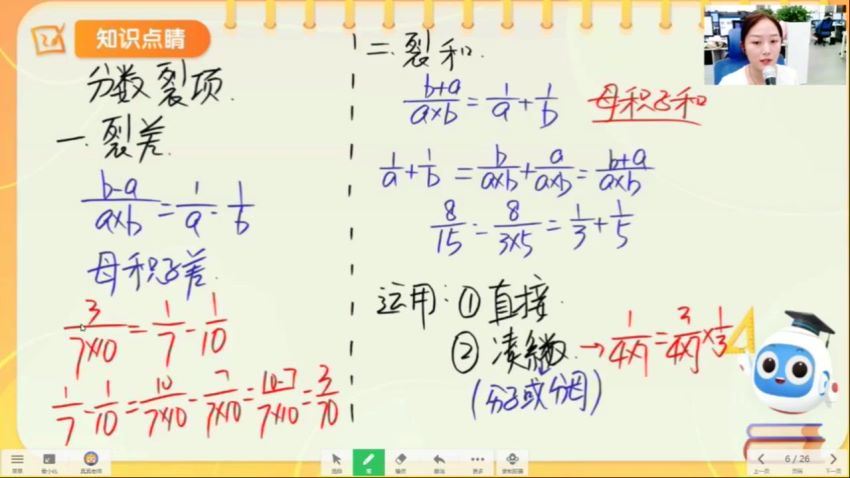 知识点睛
分数裂项.
一.裂差.
b-a/a×b=1/a-1/b
母积子差.
3/7×10=1/7-1/10
1/7-1/10=10/7×10-7/7×10=10-7/7×10=3/70
二.裂和.
b+a/a×b=1/a+1/b 母积子和
1/a+1/b=b/a×b+a/a×b=b+a/a×b
8/15=8/3×5=1/3+1/5
运用:①直接.
②凑系数.→1/4×7=3/4×7×1/3
(分子或分母)
6 / 26
菜单
最小化
选择
笔
橡皮
撤销
更多
上一页
下一页